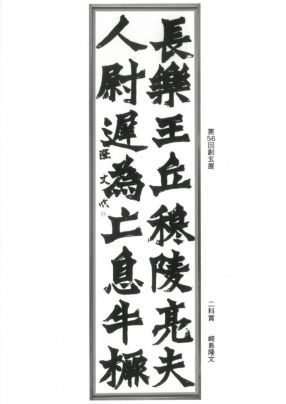 長樂王丘穆陵亮夫
人尉遲為亡息牛橛
隆文
第56回創玄展
二科賞 崎島隆文